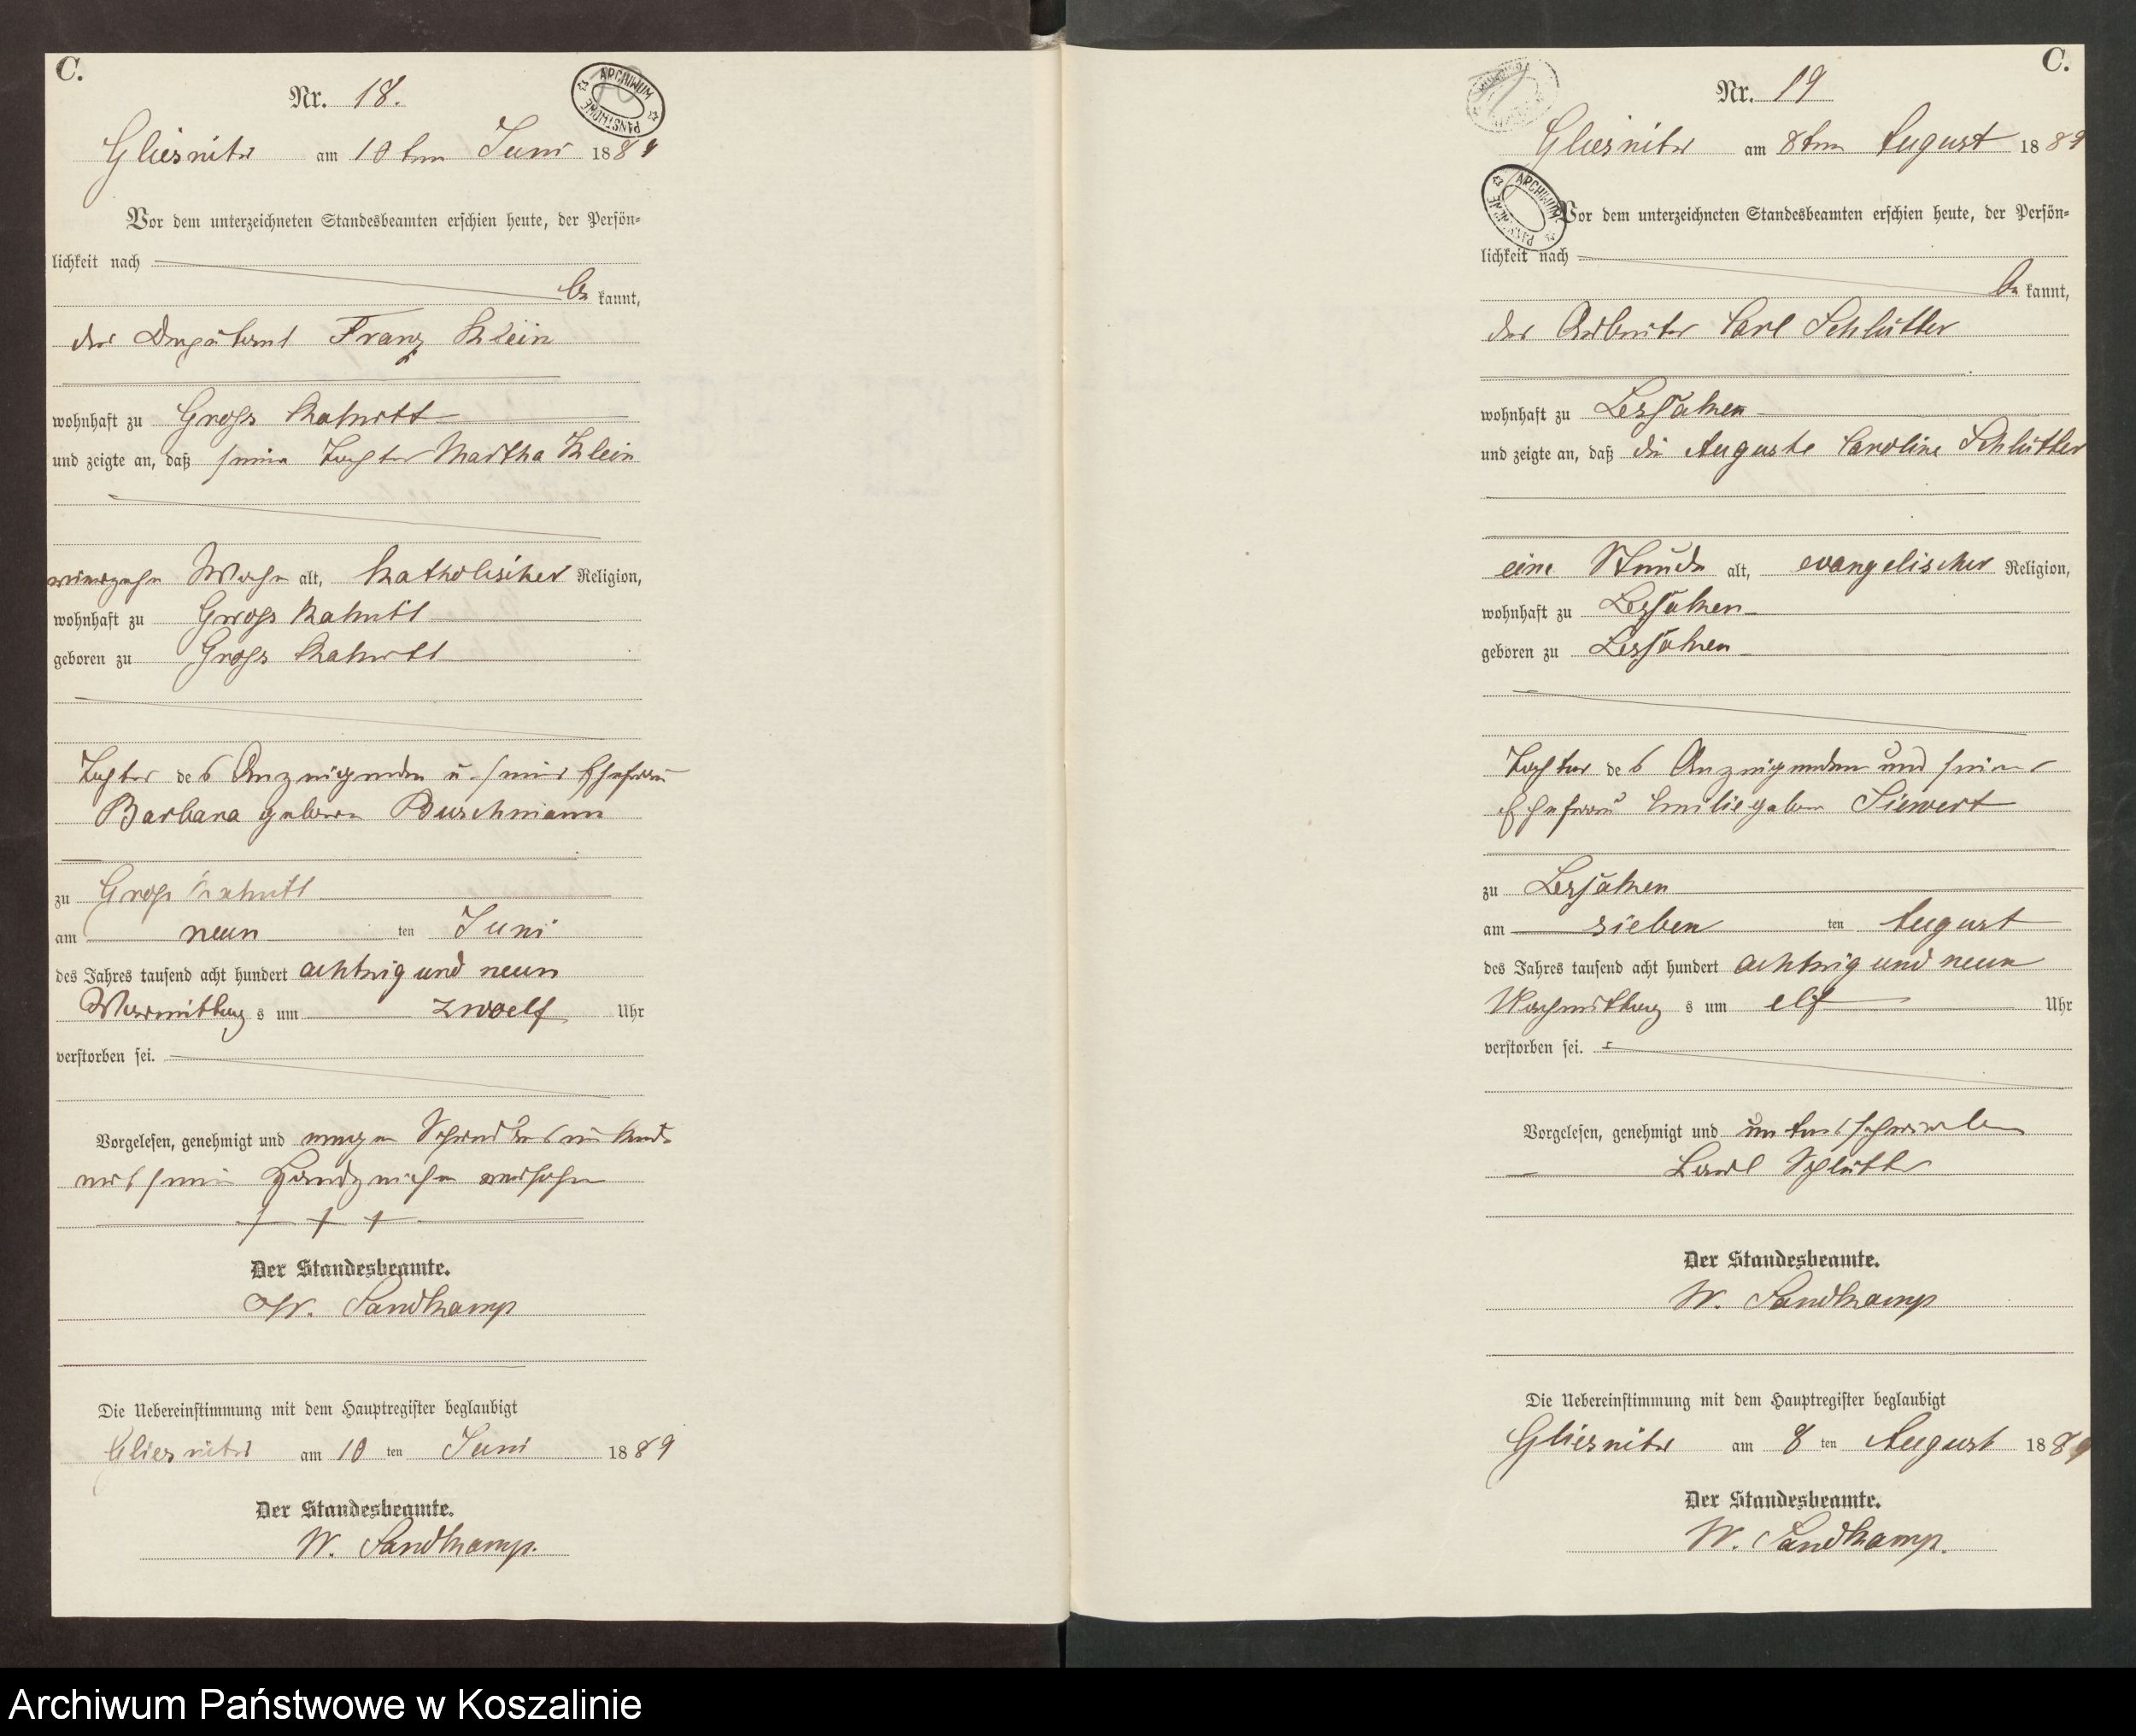 C.
Nr. 18.
ARCHIWUM PAŃSTWOWE
Gliesnitz am 10ten Juni 1889
Vor dem unterzeichneten Standesbeamten erschien heute, der Persön=
lichkeit nach
be kannt,
der Franz Klein
wohnhaft zu Gross
und zeigte an, daß seine Tochter Martha Klein
vierzehn Wochen alt, katholischer Religion,
wohnhaft zu Gross
geboren zu Gross
Tochter des Anzeigenden u. seiner Ehefrau
Barbara geborene Buschmann
zu Gross
am neun ten Juni
des Jahres tausend acht hundert achtzig und neun
Vormittags um zwoelf Uhr
verstorben sei.
Vorgelesen, genehmigt und wegen Schreibensunkunde
mit seinem Handzeichen versehen
+ + +
Der Standesbeamte.
W. Sandkamp
Die Uebereinstimmung mit dem Hauptregister beglaubigt
Gliesnitz am 10 ten Juni 1889
Der Standesbeamte.
W. Sandkamp.
C.
Nr. 19
Gliesnitz am 8ten August 1889
ARCHIWUM PAŃSTWOWE
Vor dem unterzeichneten Standesbeamten erschien heute, der Persön=
lichkeit nach
be kannt,
der Arbeiter Carl Schlütter
wohnhaft zu Lessaken
und zeigte an, daß die Auguste Caroline Schlütter
eine Stunde alt, evangelischer Religion,
wohnhaft zu Lessaken
geboren zu Lessaken
Tochter des Anzeigenden und seiner
Ehefrau Emilie geboren Siewert
zu Lessaken
am sieben ten August
des Jahres tausend acht hundert achtzig und neun
Nachmittags um elf Uhr
verstorben sei.
Vorgelesen, genehmigt und unterschrieben
Carl Schlütter
Der Standesbeamte.
W. Sandkamp
Die Uebereinstimmung mit dem Hauptregister beglaubigt
Gliesnitz am 8 ten August 1889
Der Standesbeamte.
W. Sandkamp.
Archiwum Państwowe w Koszalinie